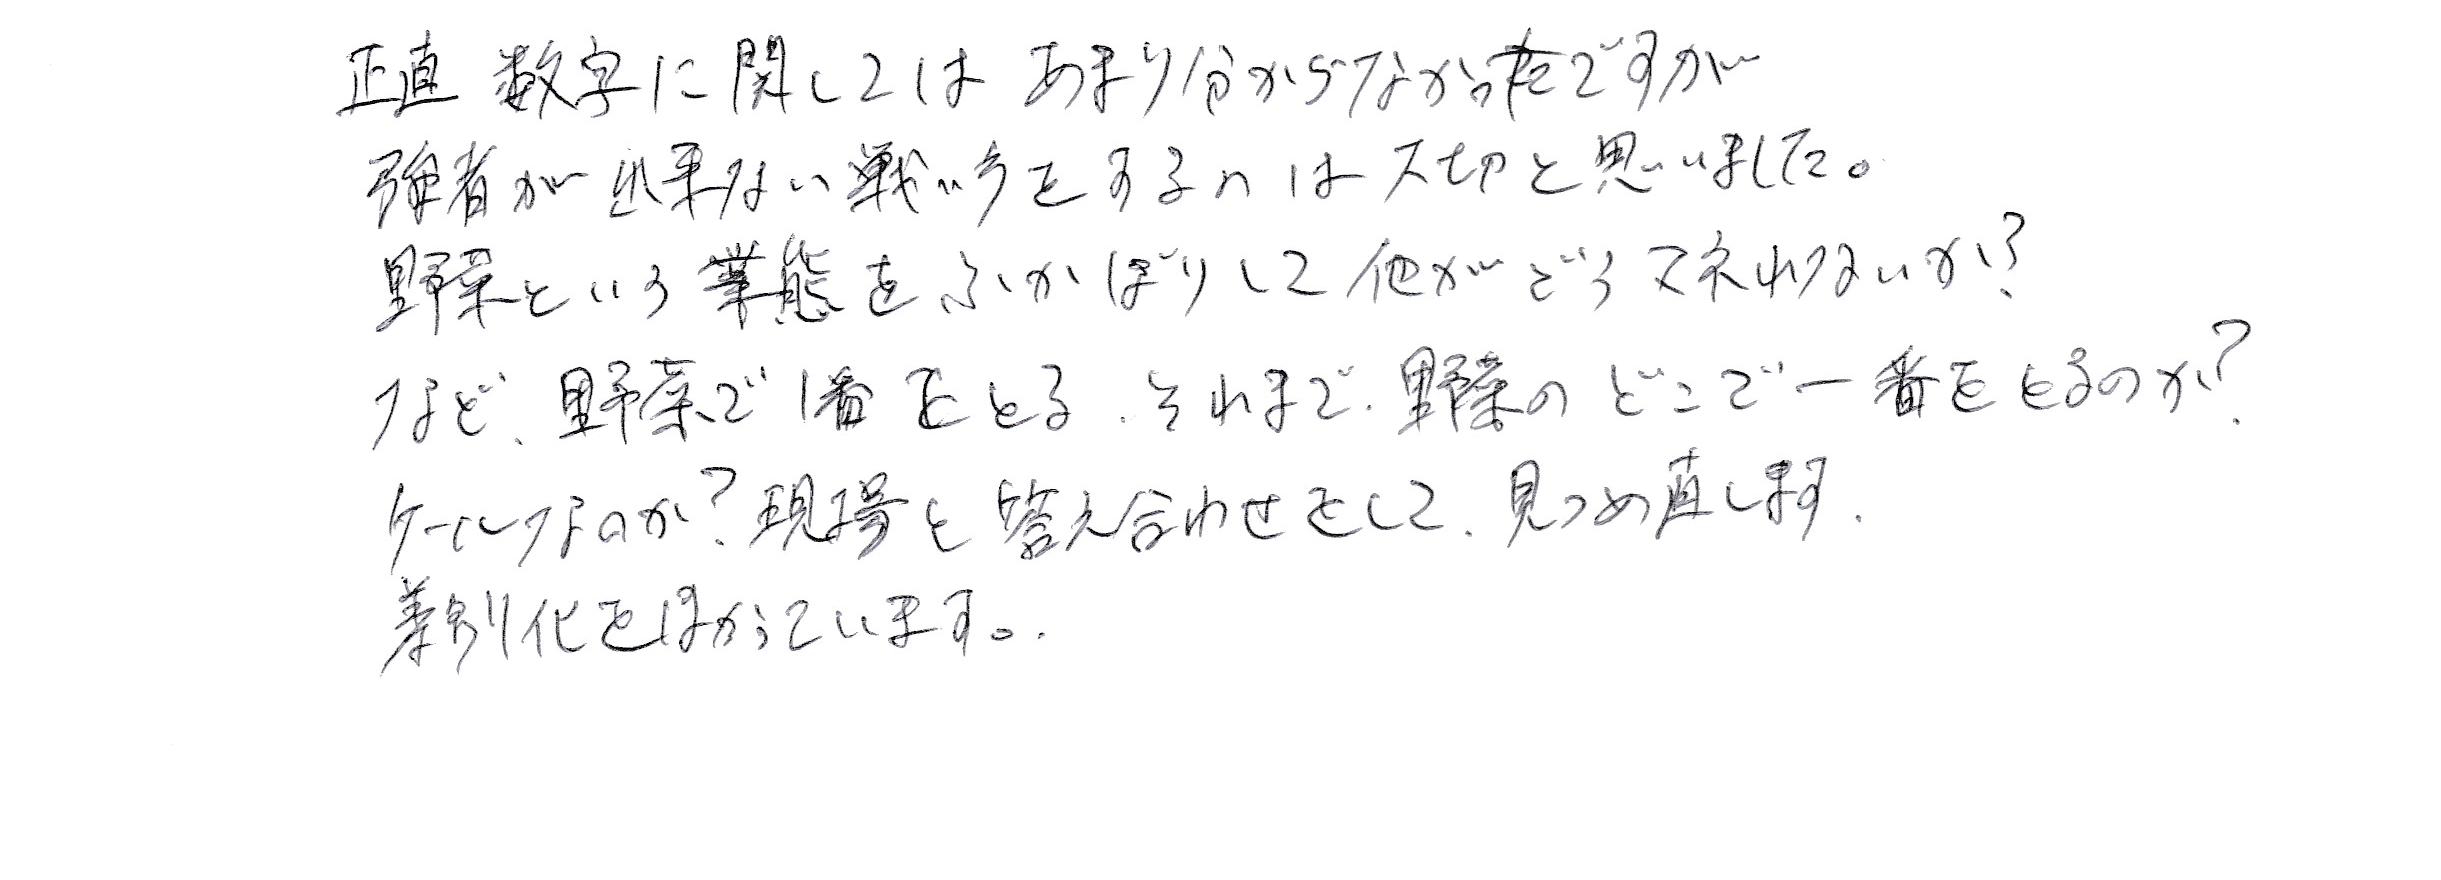 正直 数字に関しては あまり分からなかったですが
強者が出来ない戦い方をするのは大切と思いました。
野菜という業態をふかぼりして他がどうマネれないか?
など、野菜で1番をとる、それまで、野菜のどこで一番をとるのか?
ケールなのか?現場と答え合わせをして、見つめ直します.
差別化をはかっています。.